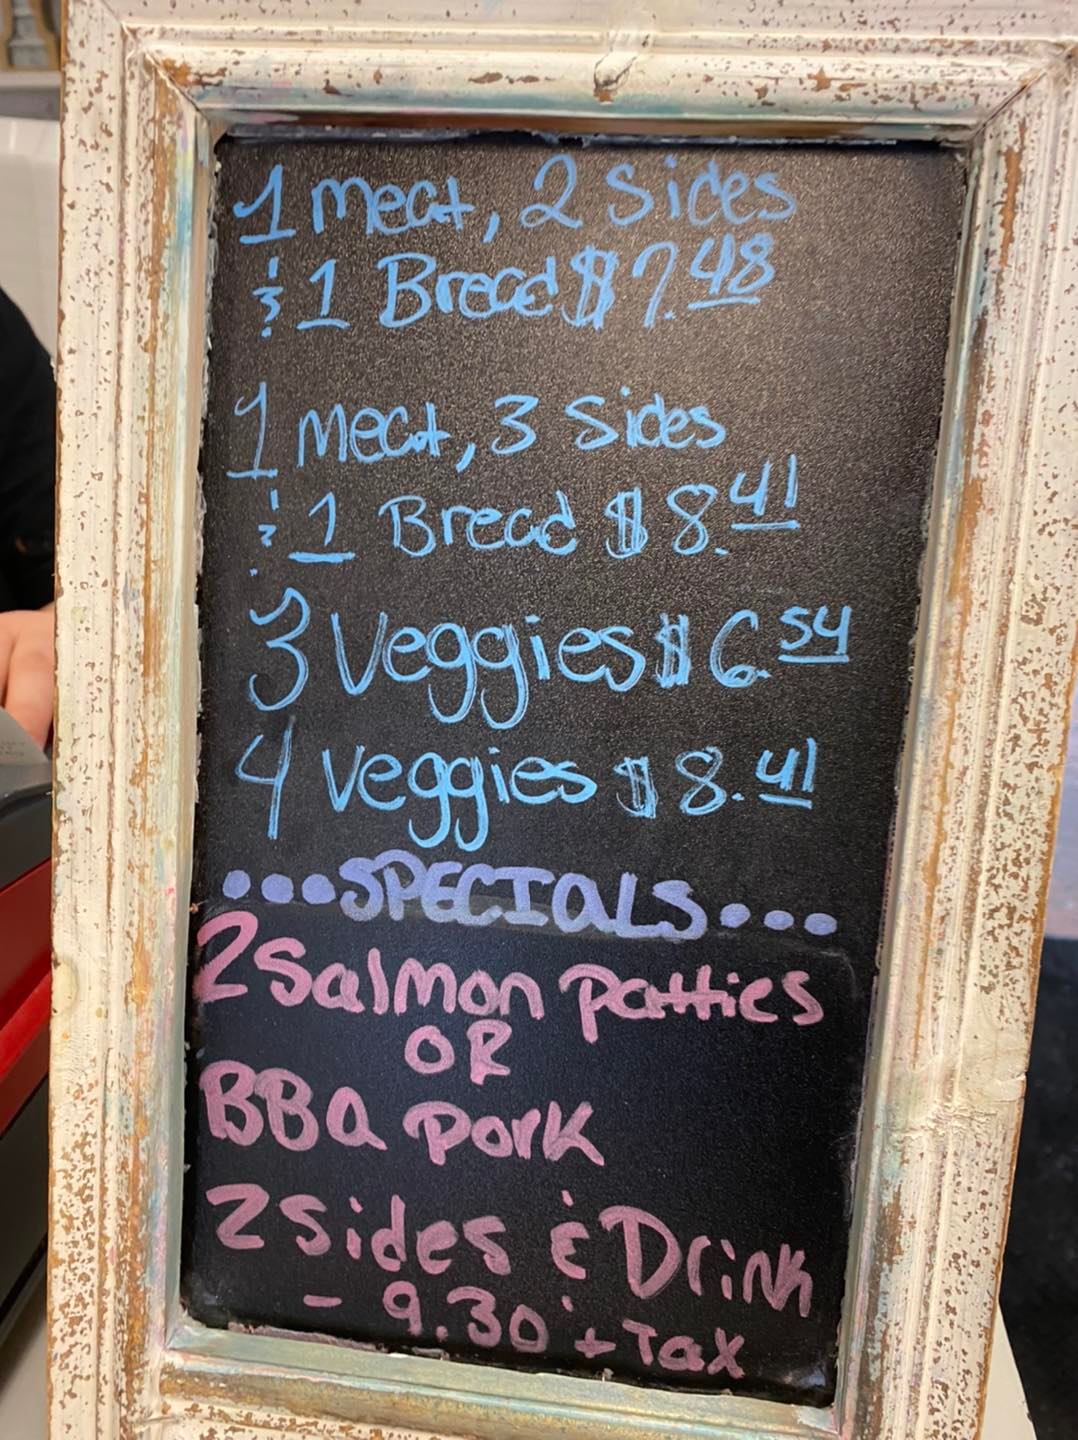 1 meat, 2 sides
& 1 Bread $7.48
1 meat, 3 sides
& 1 Bread $8.41
3 Veggies $6.54
4 Veggies $8.41
...SPECIALS...
2 Salmon Patties
OR
BBQ Pork
2 Sides & Drink
- 9.30 + Tax